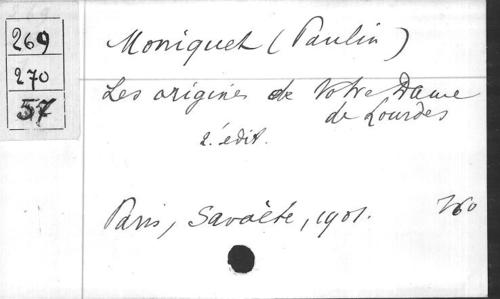 269
270
57
Moniquet (Paulin)
Les origines de Notre Dame
de Lourdes
2. édit.
Paris, Savaète, 1901.